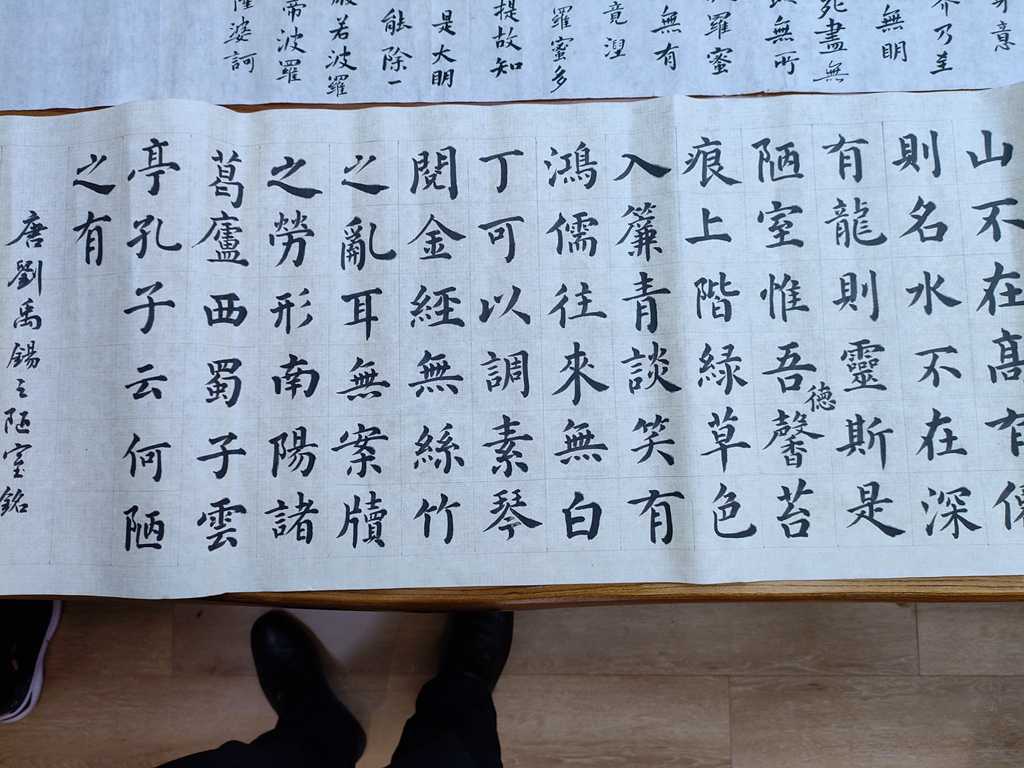 意
乃至
無明
死盡無
無所
羅蜜
無有
竟涅
羅蜜多
提故知
是大明
能除一
般若波羅
帝波羅
薩婆訶
山不在髙有
則名水不在深
有龍則靈斯是
陋室惟吾德馨苔
痕上階緑草色
入簾青談笑有
鴻儒往來無白
丁可以調素琴
閱金經無絲竹
之亂耳無案牘
之勞形南陽諸
葛廬西蜀子雲
亭孔子云何陋
之有
唐劉禹錫之陋室銘